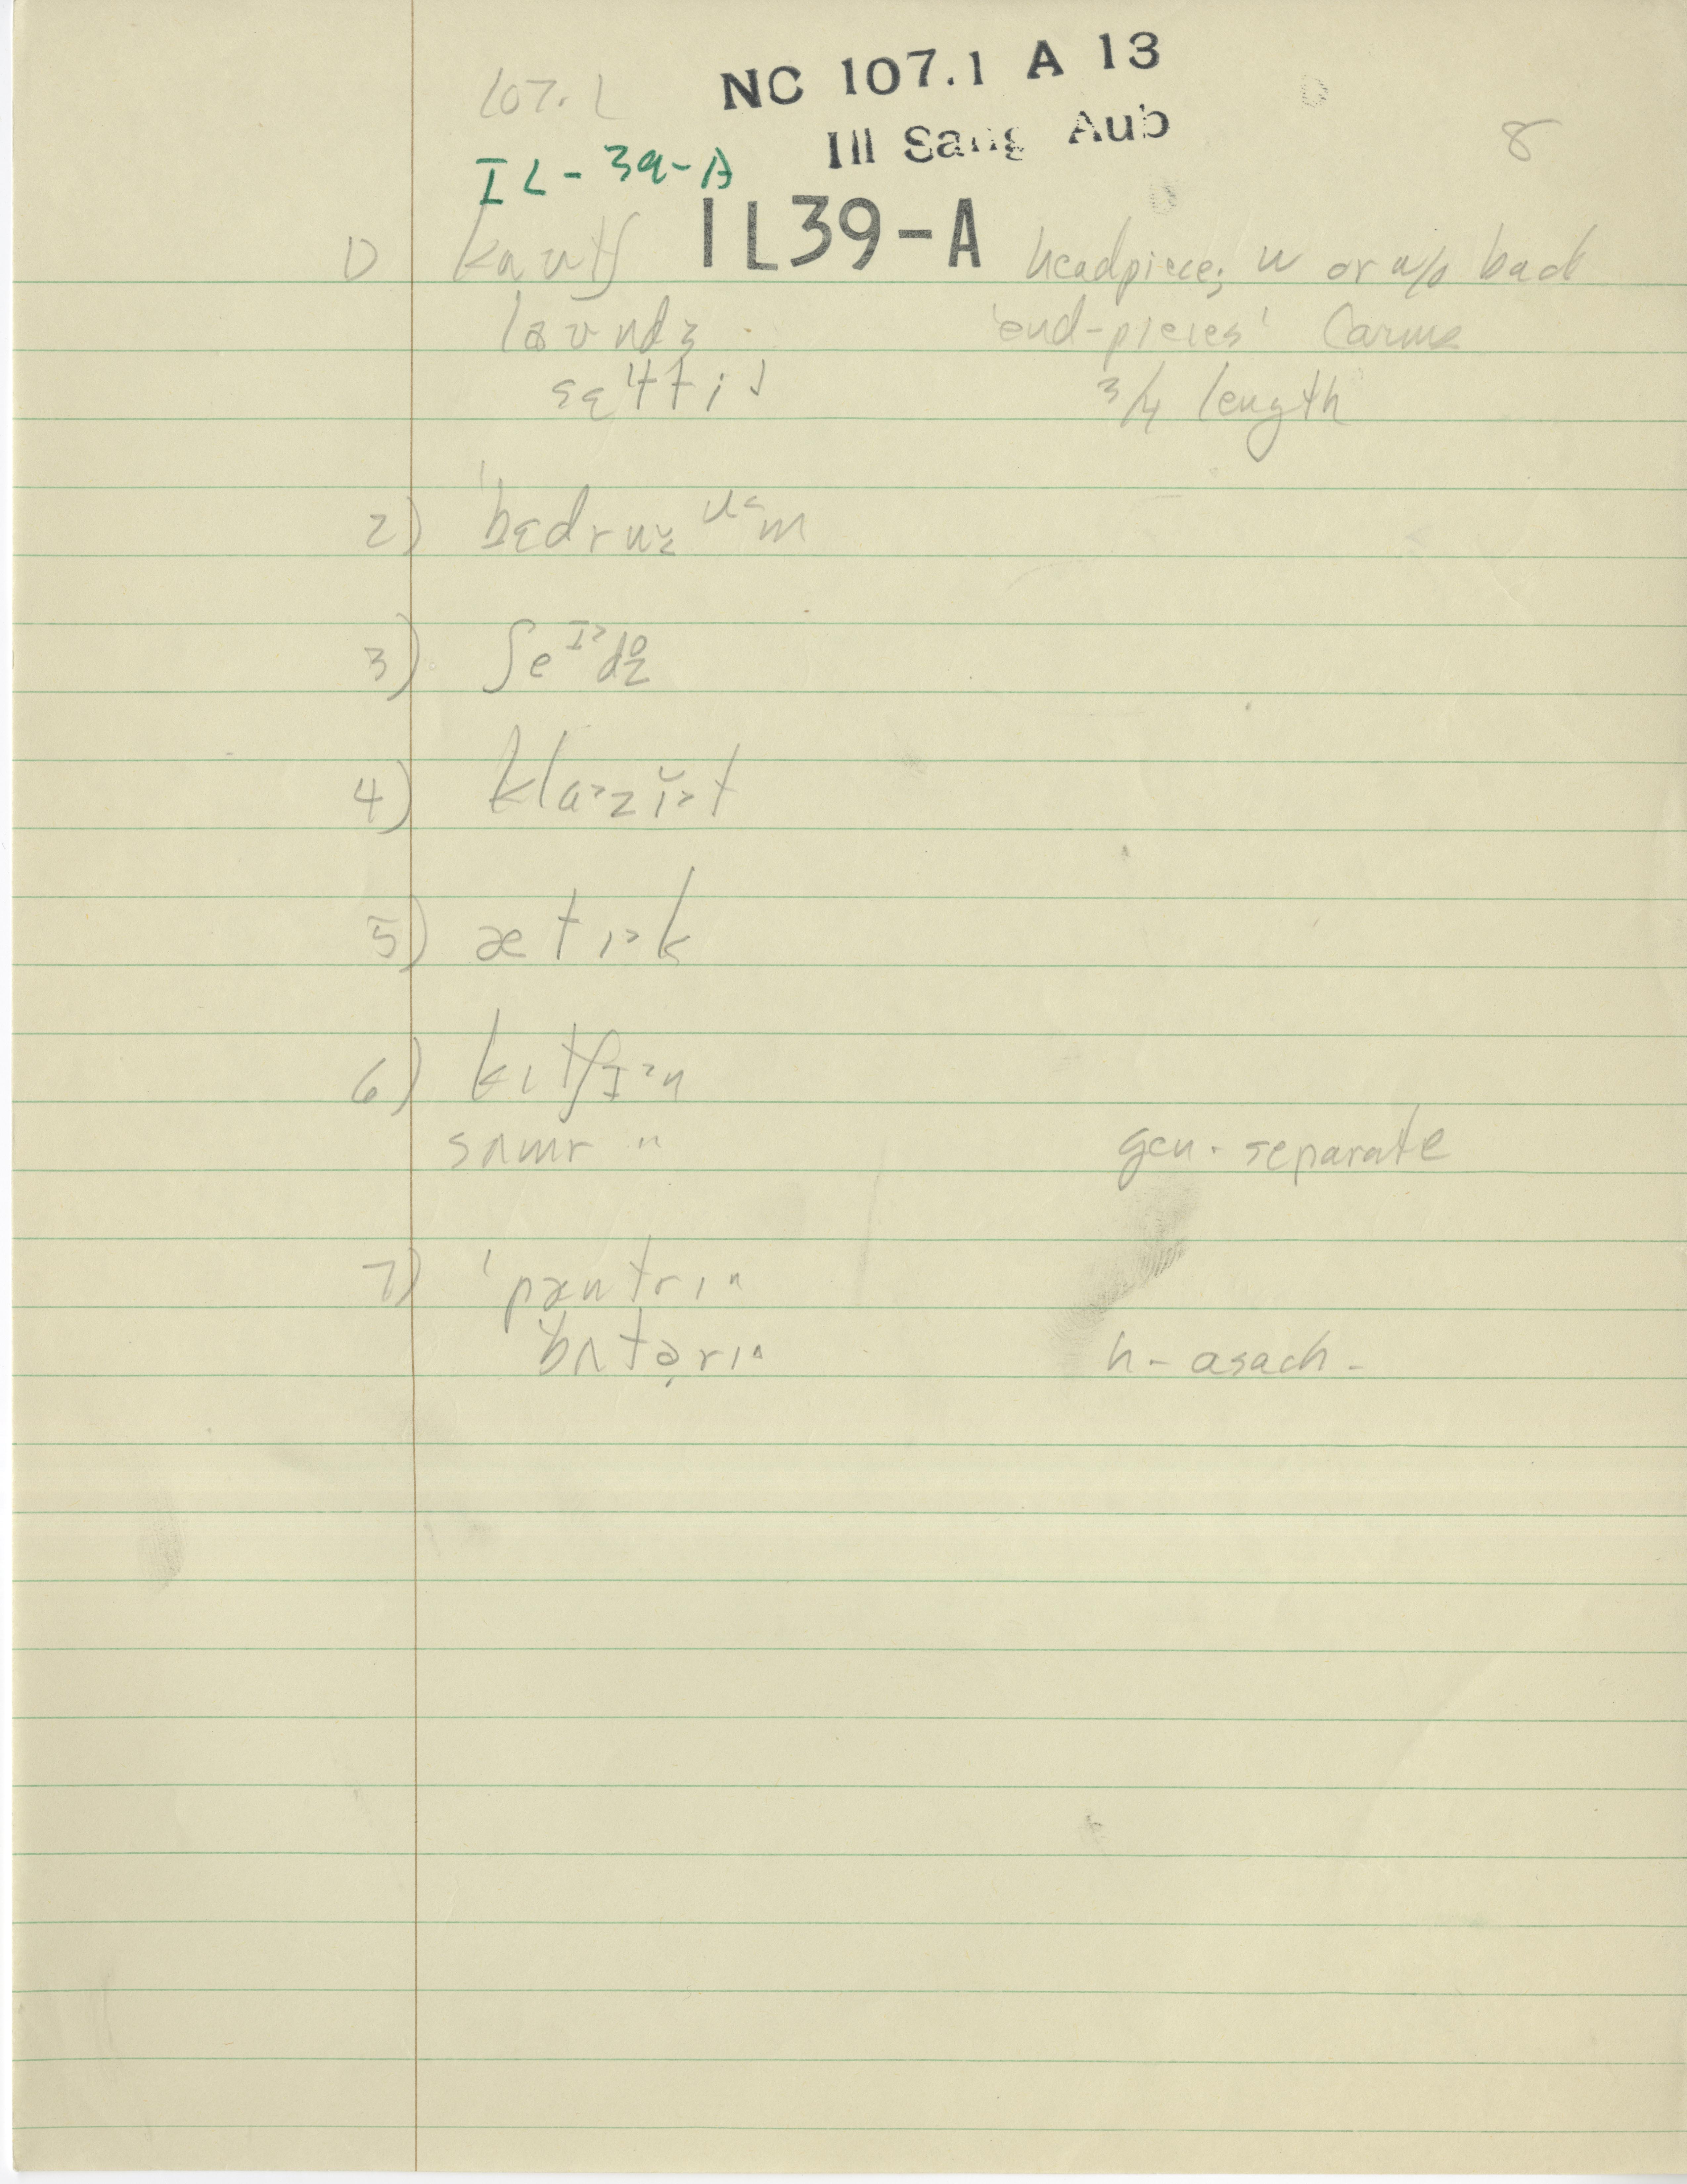 107.1 NC 107.1 A 13
Ill Sang Aub 8
IL-39-A
IL39-A
1) kautʃ headpiece; w or w/o back
laundʒ 'end-pieces' (arms
3/4 length
2) 'bɛdruᵘm
3) ʃeᴵ˃dz̥
4) kla˃zĭ˃t
5) ætɪ˃k
6) kɪtʃɪ˃n
sʌmr " gen. separate
7) 'pæntrɪ^
bʌtərɪ^ h-asach-